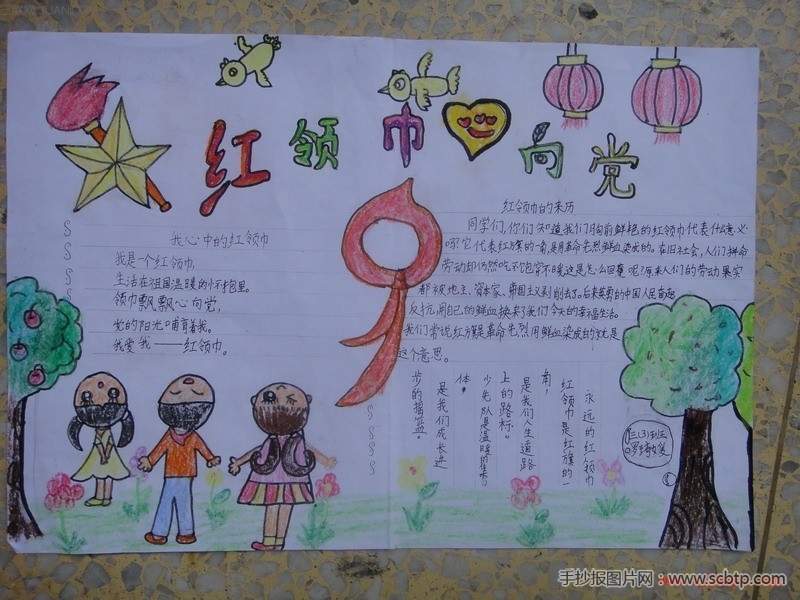 红领巾心向党
我心中的红领巾
我是一个红领巾,
生活在祖国温暖的怀抱里。
领巾飘飘心向党,
党的阳光哺育着我。
我爱我——红领巾。
红领巾的来历
同学们,你们知道我们胸前鲜艳的红领巾代表什么意义
吗?它代表红旗的一角,是用革命先烈鲜血染成的。在旧社会,人们拼命
劳动却仍然吃不饱穿不暖这是怎么回事呢?原来人们的劳动果实
都被地主、资本家、帝国主义剥削去了。后来英勇的中国人民奋起
反抗,用自己的鲜血换来了我们今天的幸福生活。
我们常说红旗是革命先烈用鲜血染成的就是
这个意思。
永远的红领巾
红领巾是红旗的一
角,
是我们人生道路
上的路标。
少先队是温暖的集
体,
是我们成长进
步的摇篮。
三(3)班
手抄报图片网:www.scbtp.com